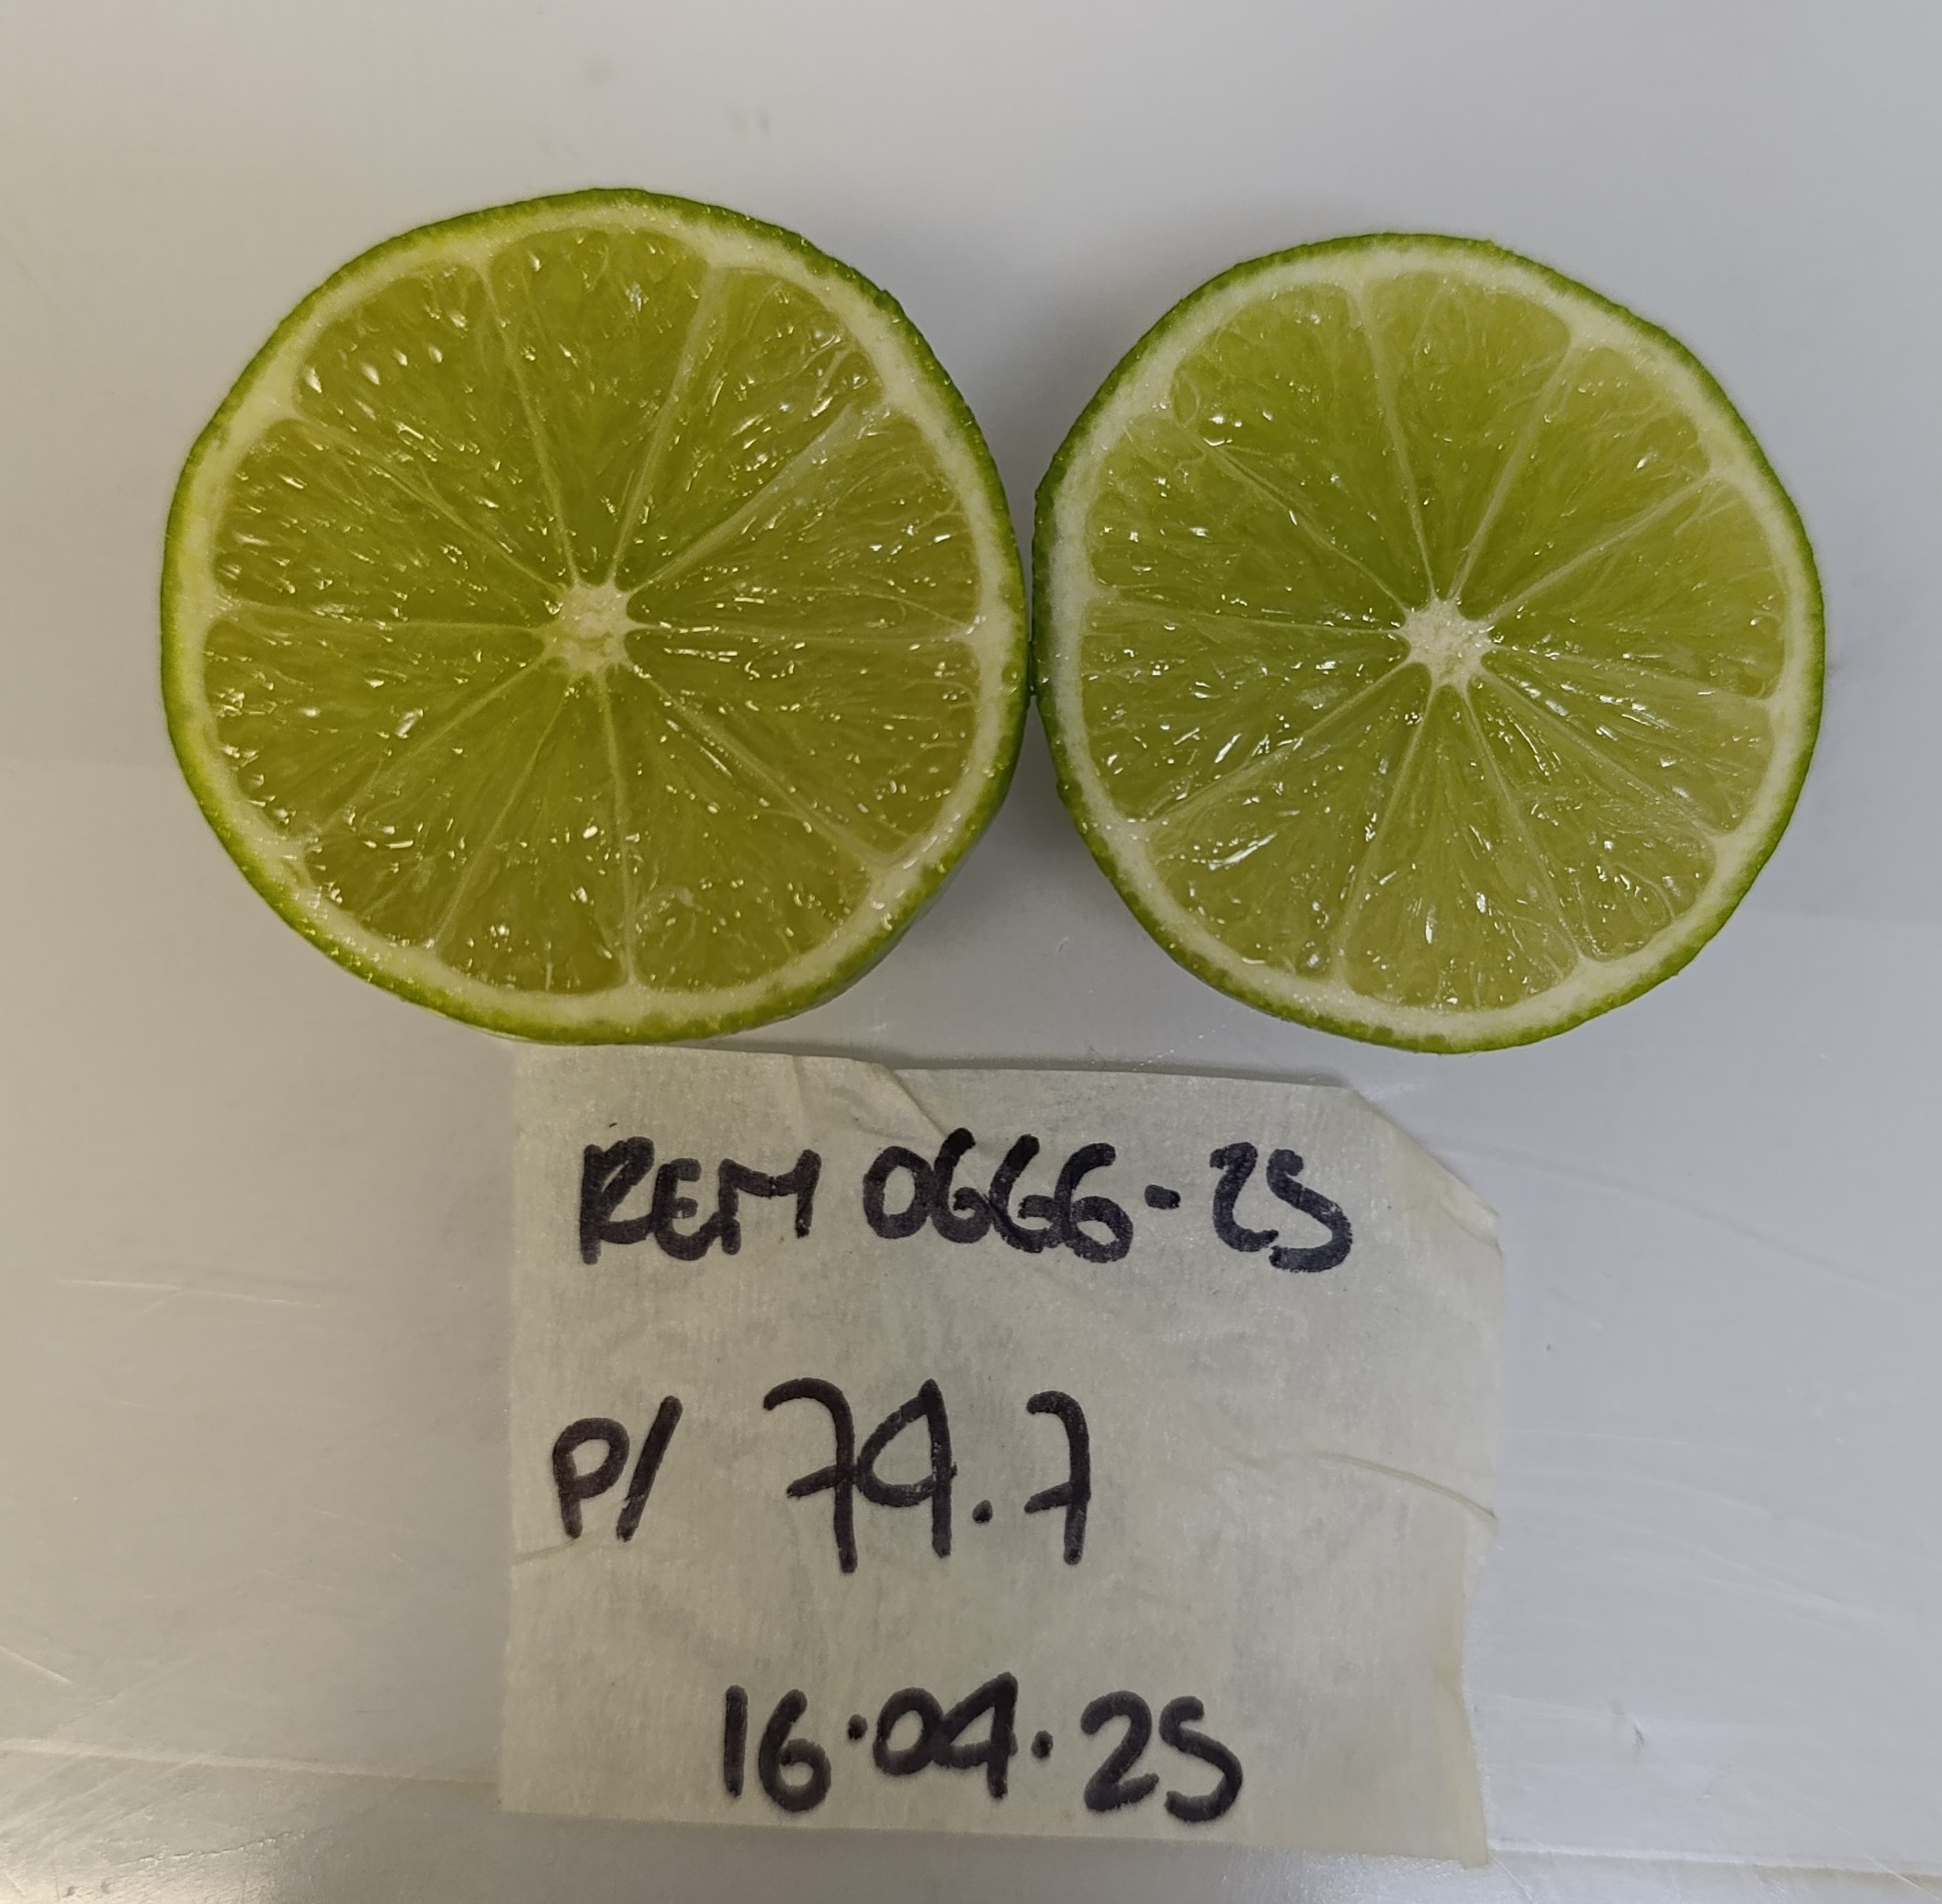 REM 0666-25
P/ 74.7
16.04.25